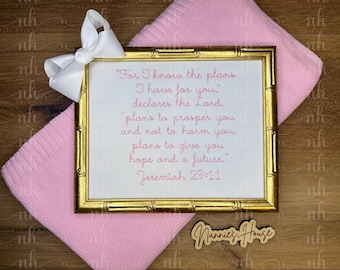 "For I know the plans
I have for you,"
declares the Lord,
"plans to prosper you
and not to harm you,
plans to give you
hope and a future."
Jeremiah 29:11
Nannie's House
nh